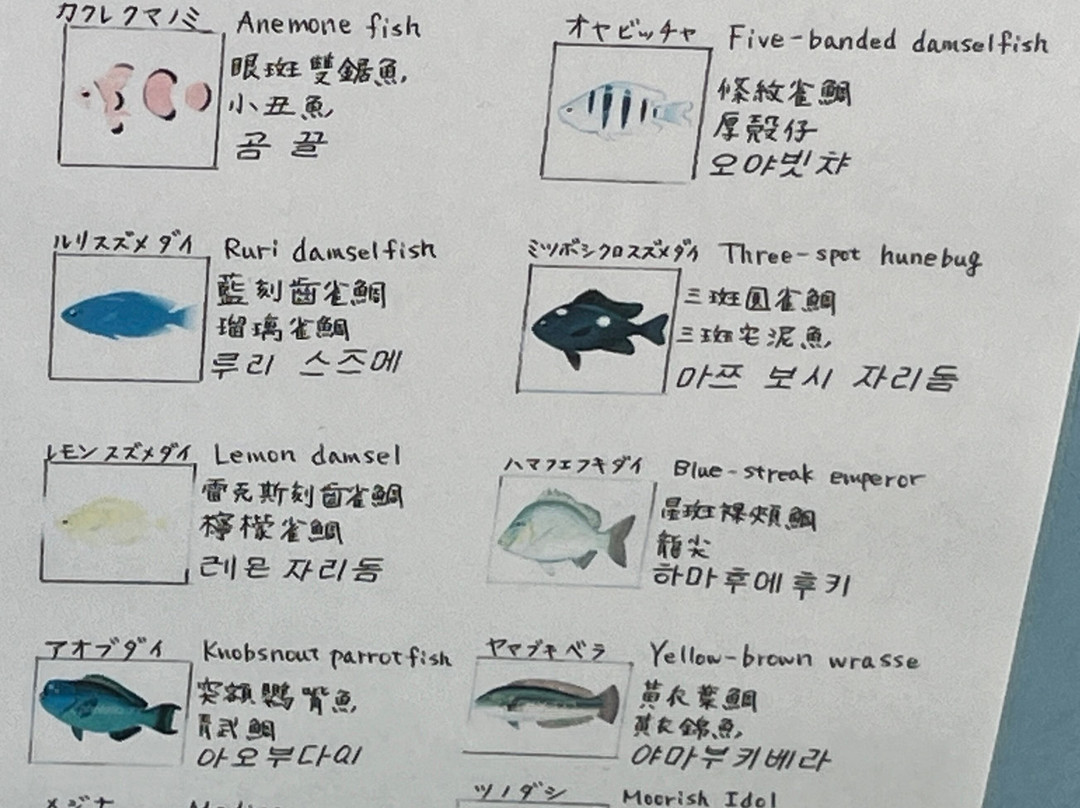 カクレクマノミ
Anemone fish
眼斑雙鋸魚,
小丑魚
곰 끌
オヤビッチャ
Five-banded damselfish
條紋雀鯛
厚殼仔
오야빗챠
ルリスズメダイ
Ruri damselfish
藍刻齒雀鯛
瑠璃雀鯛
루리 스즈메
ミツボシクロスズメダイ
Three-spot hunebug
三斑圓雀鯛
三斑宅泥魚,
마쯔 보시 자리돔
レモンスズメダイ
Lemon damsel
雷克斯刻齒雀鯛
檸檬雀鯛
레몬 자리돔
ハマフエフキダイ
Blue-streak emperor
星斑裸頰鯛
龍尖
하마후에후키
アオブダイ
Knobsnout parrotfish
突額鸚嘴魚,
青武鯛
아오부다이
ヤマブキベラ
Yellow-brown wrasse
黃衣葉鯛
黃衣錦魚,
야마부키베라
メジナ
ツノダシ
Moorish Idol